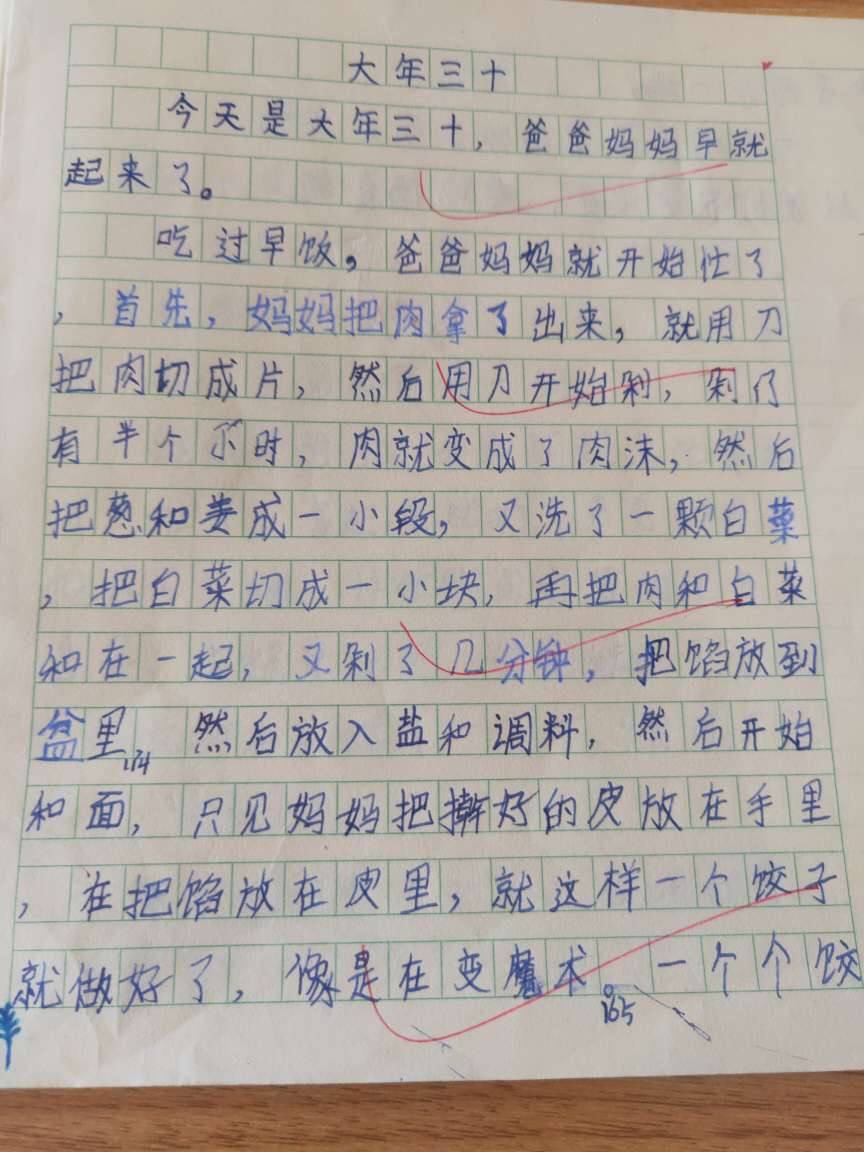 大年三十
今天是大年三十，爸爸妈妈早就
起来了。
吃过早饭，爸爸妈妈就开始忙了
，首先，妈妈把肉拿了出来，就用刀
把肉切成片，然后用刀开始剁，剁了
有半个小时，肉就变成了肉沫，然后
把葱和姜成一小段，又洗了一颗白菜
，把白菜切成一小块，再把肉和白菜
和在一起，又剁了几分钟，把馅放到
盆里，然后放入盐和调料，然后开始
和面，只见妈妈把擀好的皮放在手里
，在把馅放在皮里，就这样一个饺子
就做好了，像是在变魔术。一个个饺
165